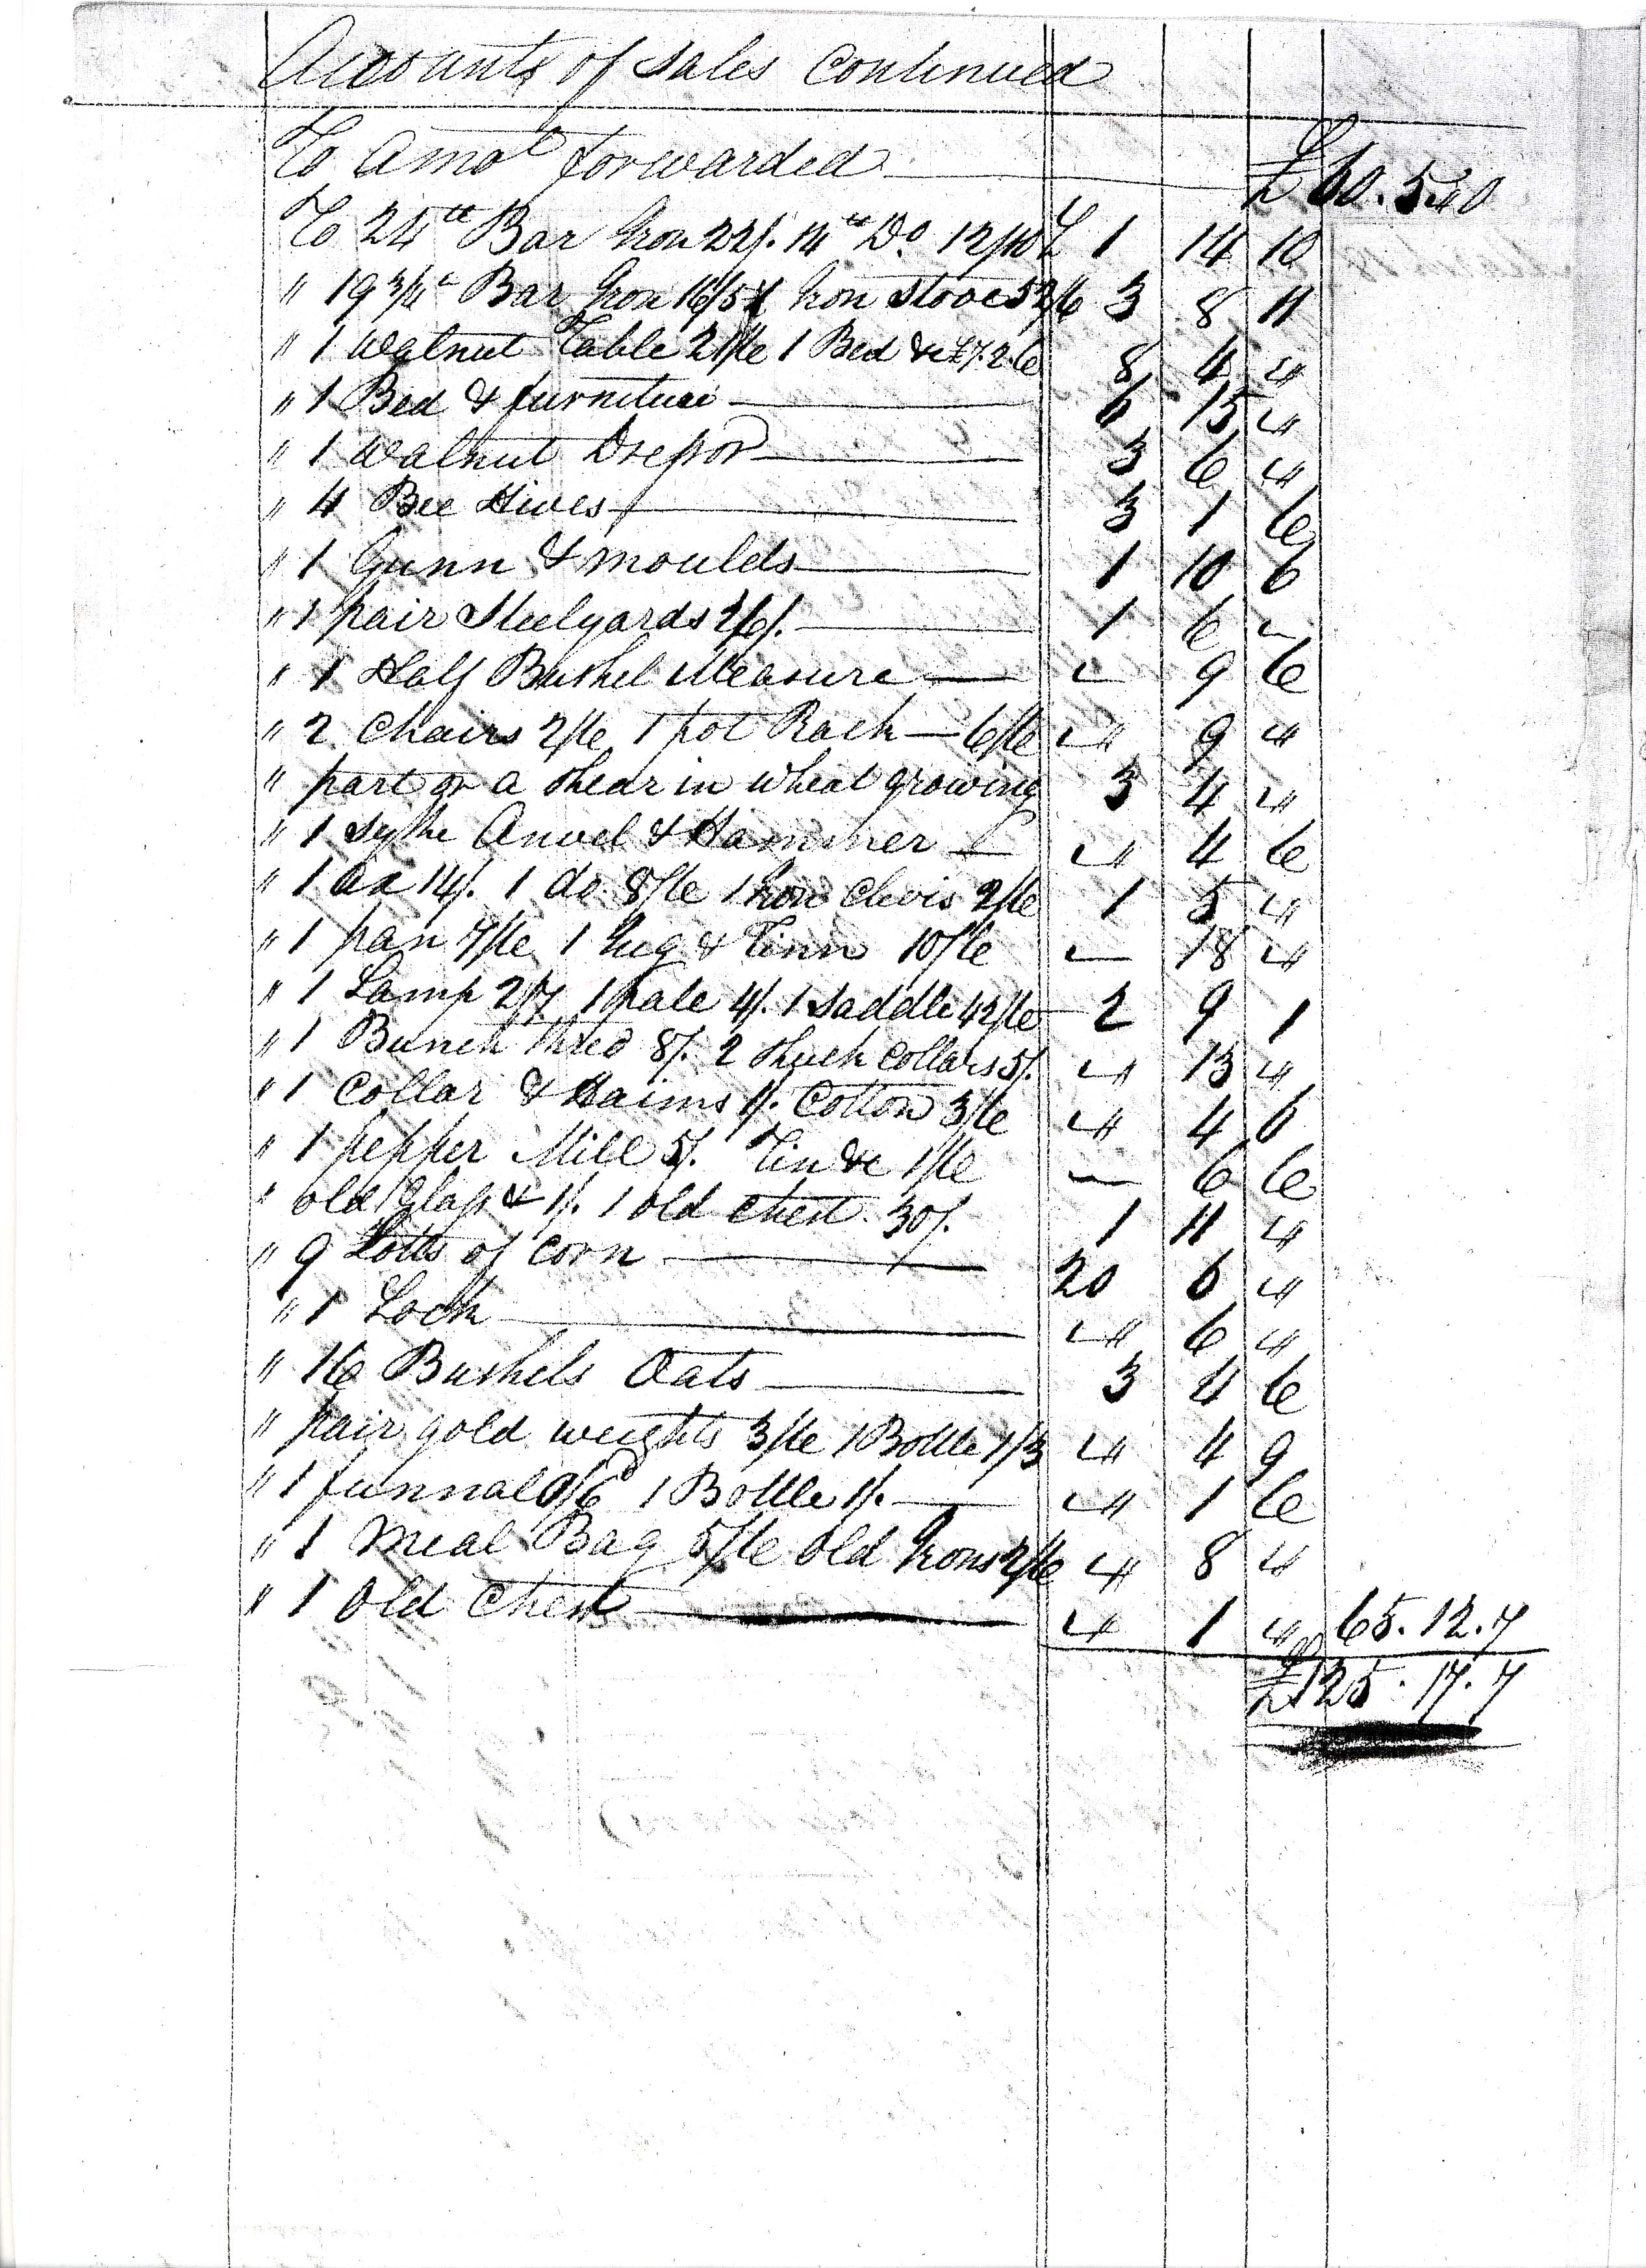 Accounts of Sales Continued
To Amot forwarded £60.5.0
To 24 lb Bar Iron 22/. 14 lb Do. 12/10 £ 1 14 10
" 19 3/4 lb Bar Iron 16/5 1 Iron Stove 52/6 3 8 11
" 1 Walnut Table 21/6 1 Bed &c £7.2.6 8 4 "
" 1 Bed & furniture 6 15 "
" 1 Walnut Dresser 3 6 "
" 4 Bee Hives 3 1 6
" 1 Gunn & moulds 1 10 6
" 1 pair Steelyards 26/. 1 6 "
" 1 Half Bushel Measure " 9 6
" 2 Chairs 2/6 1 pot Rack 6/6 " 9 "
" part or a Shear in wheat growing 3 4 "
" 1 Sythe Anvel & Hammer " 4 6
" 1 Ax 14/. 1 do 8/6 1 Iron Clevis 2/6 1 5 "
" 1 pan 7/6 1 Jug & Tinn 10/6 — 18 "
" 1 Lamp 2/7 1 pale 4/. 1 Saddle 42/6 2 9 1
" 1 Bunch thred 8/. 2 Shuck Collars 5/. " 13 "
" 1 Collar & Haims 1/. Cotton 3/6 " 4 6
" 1 pepper Mill 5/. Tin &c 1/6 — 6 6
" old Glass & 1/. 1 old Chest 30/. 1 11 "
" 9 Lotts of Corn 20 6 "
" 1 Lock " 6 "
" 16 Bushels Oats 3 4 6
" pair gold weights 3/6 1 Bottle 1/3 " 4 9
" 1 funnal 0/6 1 Bottle 1/. " 1 6
" 1 Meal Bag 5/6 Old Irons 2/6 " 8 "
" 1 Old Chest " 1 " 65.12.7
£125.17.7